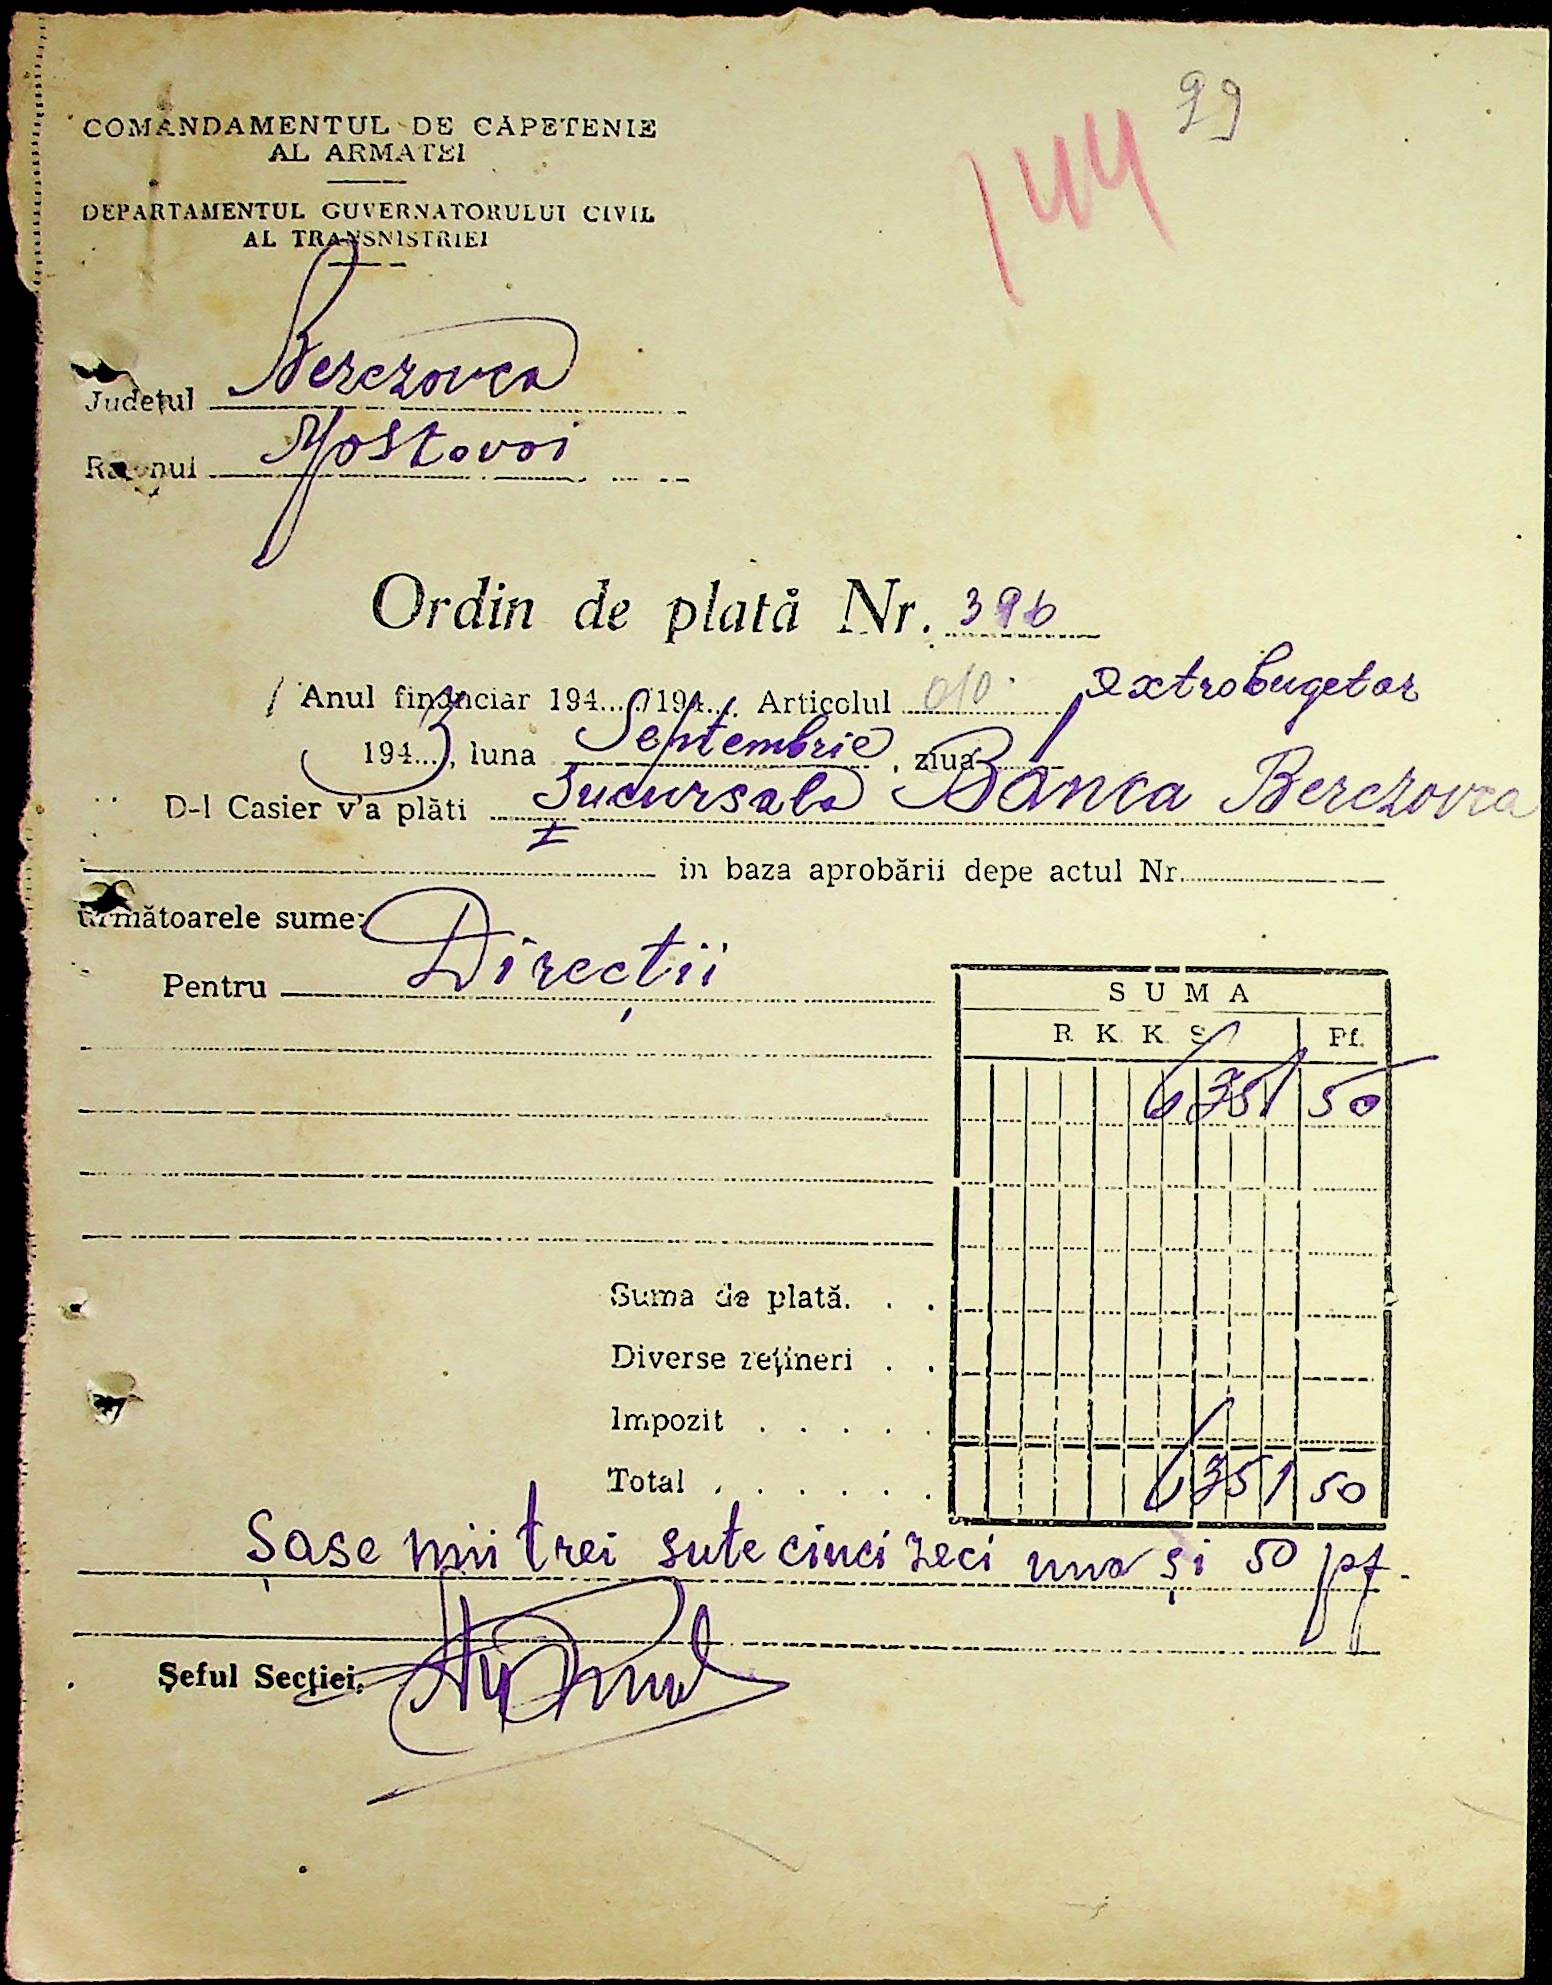 99
144
COMANDAMENTUL DE CAPETENIE
AL ARMATEI
DEPARTAMENTUL GUVERNATORULUI CIVIL
AL TRANSNISTRIEI
Județul Berezovca
Raionul Mostovoi
Ordin de plată Nr. 396
Anul financiar 194.../194... Articolul 010 extrobugetar
1943, luna Septembrie, ziua
D-l Casier v'a plăti Sucursala Banca Berezovca
I
in baza aprobării depe actul Nr.
următoarele sume:
Pentru Direcții
SUMA
R K K S Pf.
6351 50
Suma de plată. . .
Diverse rețineri . .
Impozit . . . . .
Total . . . . . . 6351 50
Șase mii trei sute cinci zeci una și 50 pf.
Șeful Secției,